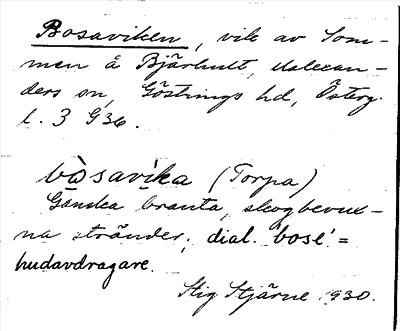 Bosaviken, vik av Som-
men å Bjärhult, Malexan-
ders sn, Göstrings hd, Österg.
l. 3 G36.
bòsavika (Torpa)
Ganska branta, skogbevux-
na stränder; dial. bose' =
hudavdragare.
Stig Stjärne 1930.